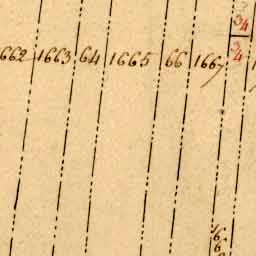 1662 1663 64 1665 66 1667
3/4
3/4